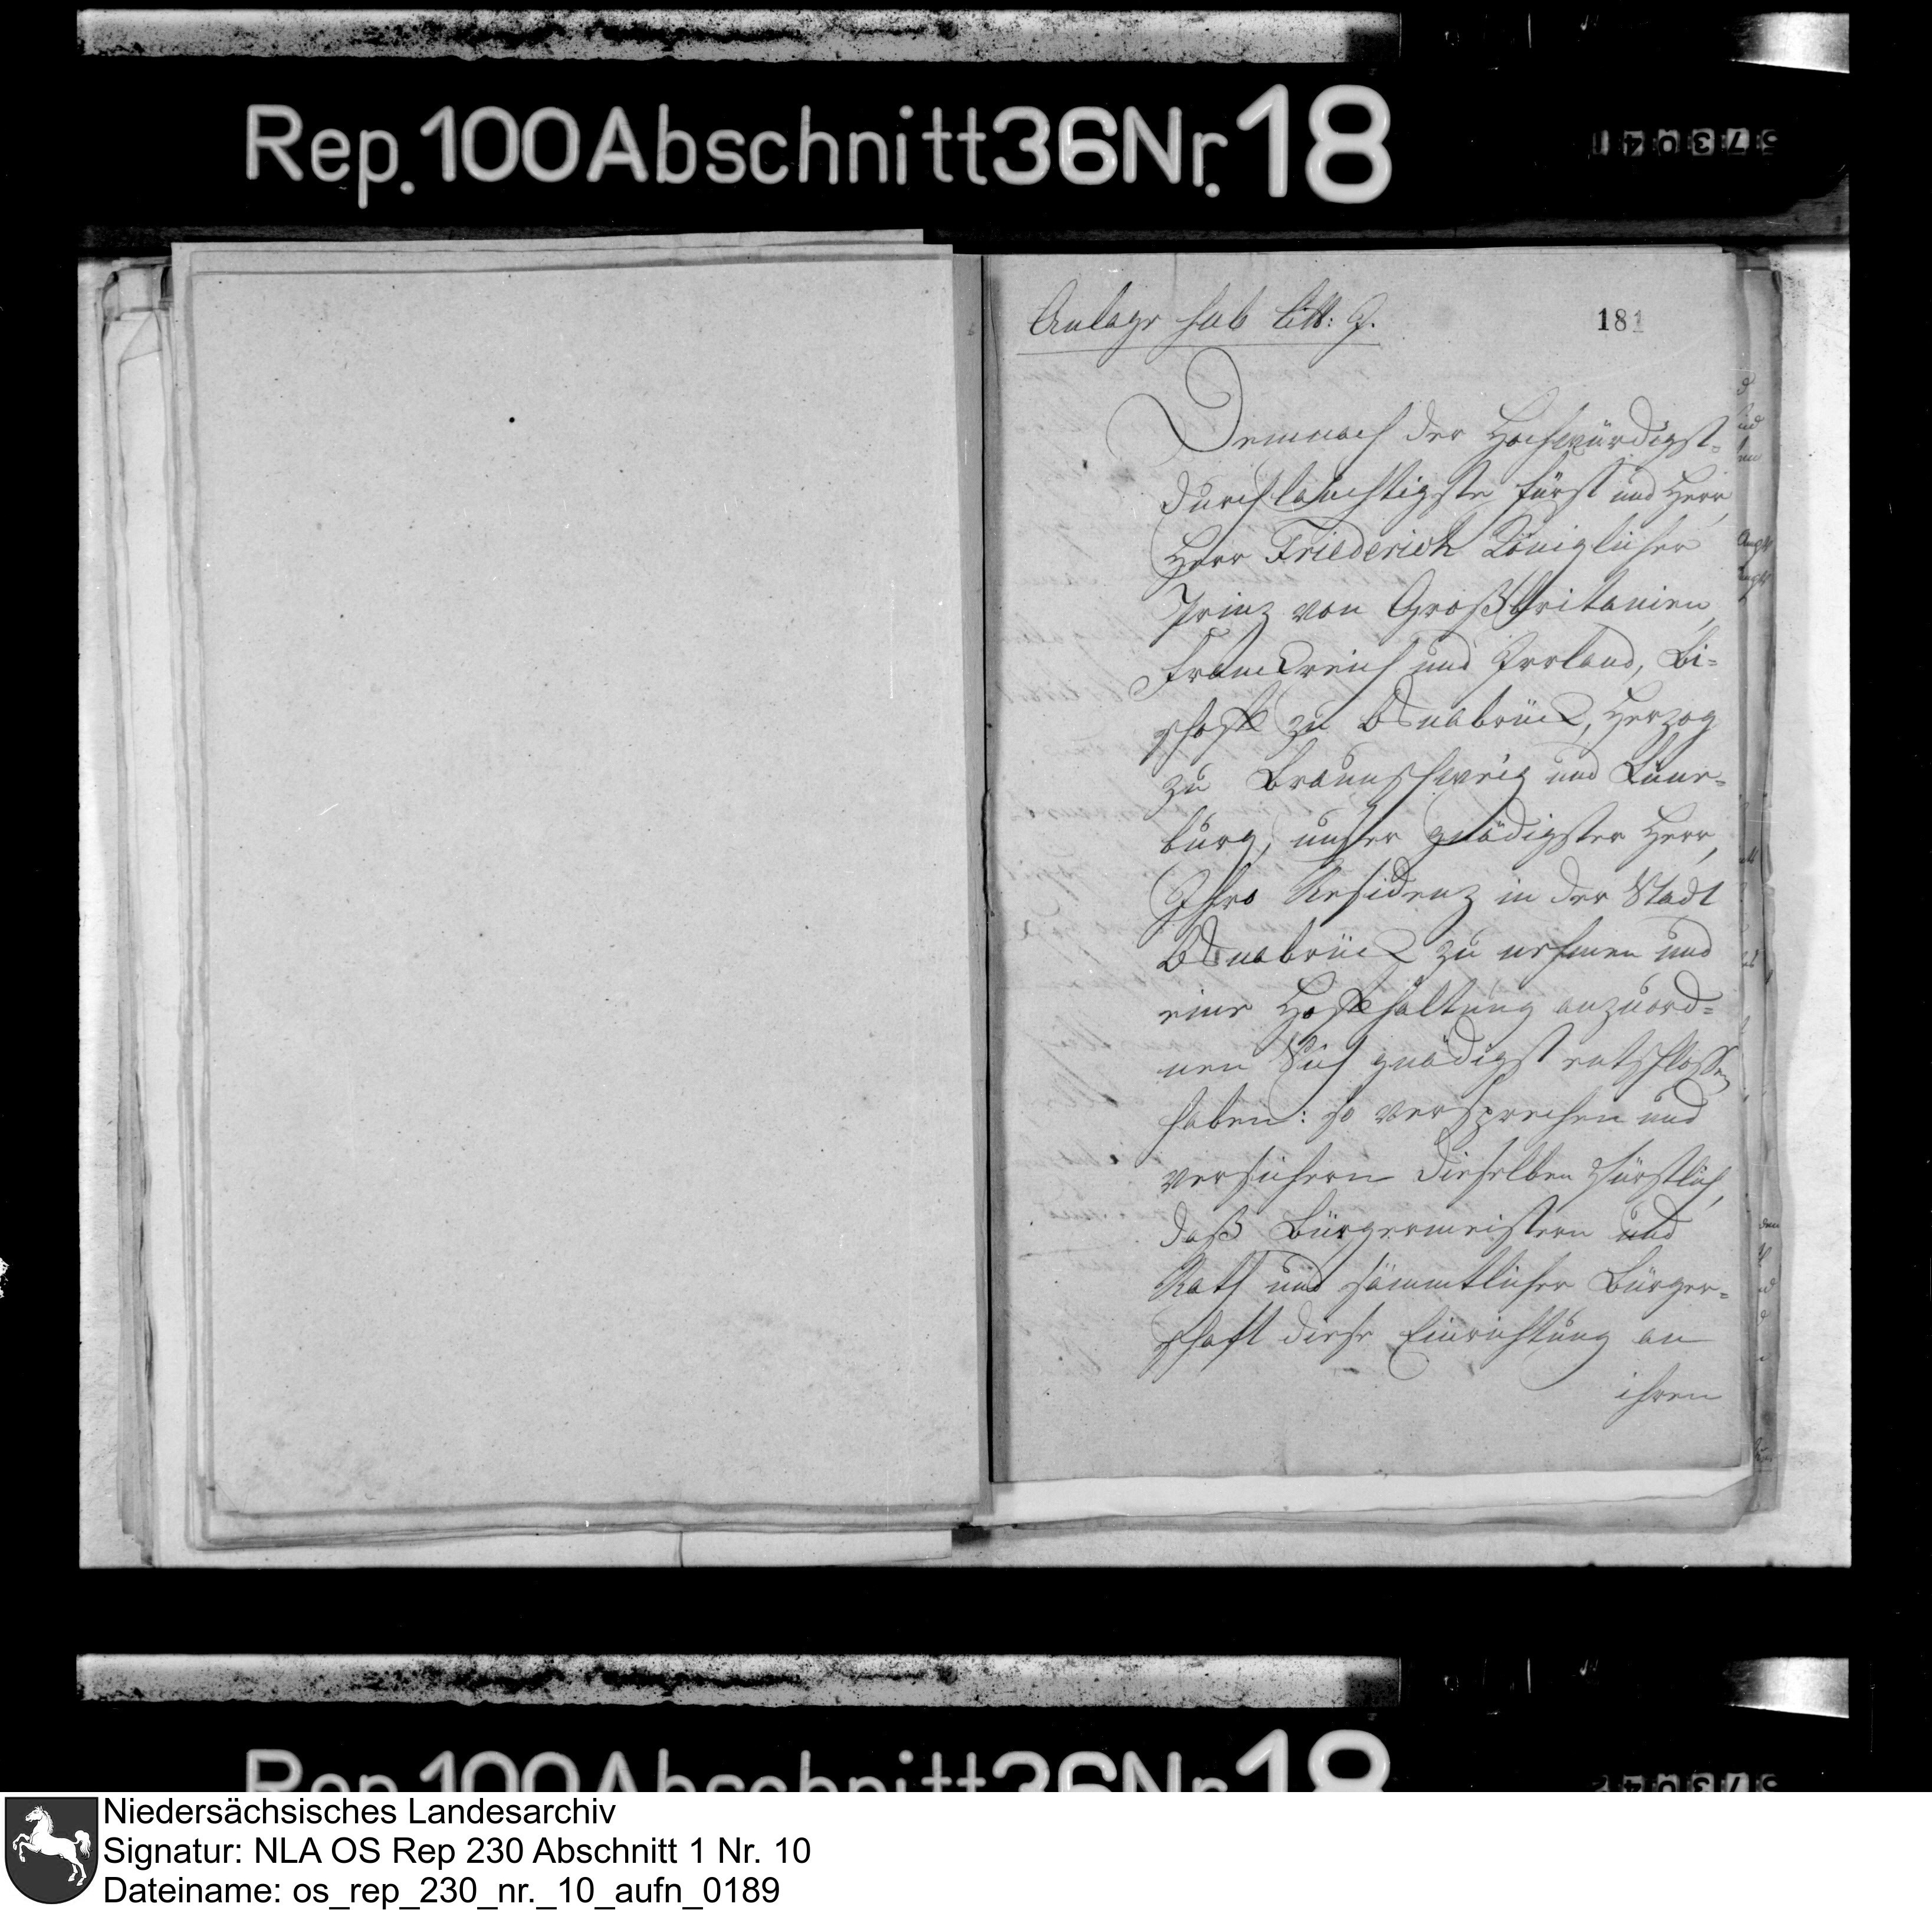 Rep. 100 Abschnitt 36 Nr. 18
Anlage sub litt: J.
181
Demnach der Hochwürdigst-
durchlauchtigste Fürst und Herr,
Herr Friederich Königlicher
Prinz von Großbritanien,
Franckreich und Irrland, Bi=
schoff zu Osnabrück, Herzog
zu Braunschweig und Lüne=
burg, unser gnädigster Herr,
Ihro Residenz in der Stadt
Osnabrück zu nehmen und
eine Hoffhaltung anzuord=
nen Sich gnädigst entschlossen
haben: so versprechen und
versichern dieselben Fürstlich,
daß Bürgermeistern und
Rath und sämmtlicher Bürger=
schaft diese Einrichtung an
ihren
Rep. 100 Abschnitt 36 Nr. 18
Niedersächsisches Landesarchiv
Signatur: NLA OS Rep 230 Abschnitt 1 Nr. 10
Dateiname: os_rep_230_nr._10_aufn_0189